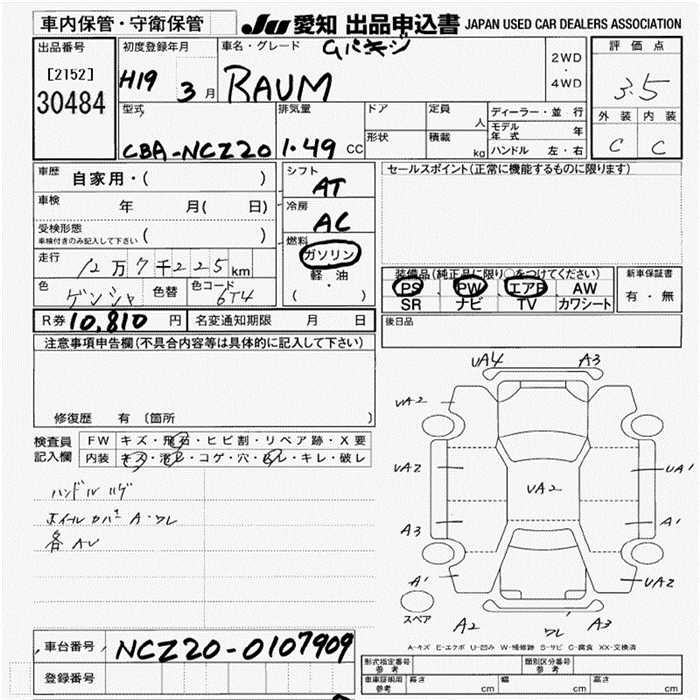 車内保管・守衛保管 JU 愛知 出品申込書 JAPAN USED CAR DEALERS ASSOCIATION
出品番号 初度登録年月 車名・グレード Gパッケージ 評価点
[2152] H19 3月 RAUM 2WD・4WD 3.5
30484 外装 内装
型式 排気量 ドア 定員 人 ディーラー・並行
CBA-NCZ20 1.49 CC 形状 積載 kg モデル年式 年 C C
ハンドル 左・右
車歴 自家用・( ) シフト AT セールスポイント(正常に機能するものに限ります)
車検 年 月( 日) 冷房 AC
受検形態 ( )
車検付きのみ記入して下さい
燃料 ガソリン
走行 12万7千225km 軽・油 装備品(純正品に限り○をつけてください) 新車保証書
色 ゲンシャ 色替 色コード 6T4 ( ) PS PW エアB AW 有・無
SR ナビ TV カワシート
R券 10,810 円 名変通知期限 月 日 後日品
注意事項申告欄(不具合内容等は具体的に記入して下さい)
修復歴 有 〔箇所 〕
検査員記入欄 FW キズ・飛石・ヒビ割・リペア跡・X要
内装 キズ・汚レ・コゲ・穴・スレ・キレ・破レ
ハンドルハゲ
ホイールカバーA・ワレ
各AU
UA4 A3
UA2
UA2 UA2 UA'
A3 A'
A' UA2
スペア A2 ワレ' A3
A-キズ E-エクボ U-凹み W-補修跡 S-サビ C-腐食 XX-交換済
車台番号 NCZ20-0107909
登録番号
型式指定番号 参考 類別区分番号 参考
車庫証明用 参考 長さ cm 幅 cm 高さ cm